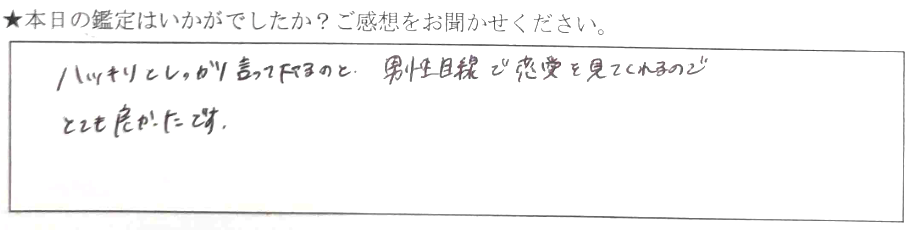 ★本日の鑑定はいかがでしたか？ご感想をお聞かせください。
ハッキリとしっかり言って下さるのと、男性目線で恋愛を見てくれるので
とても良かったです。